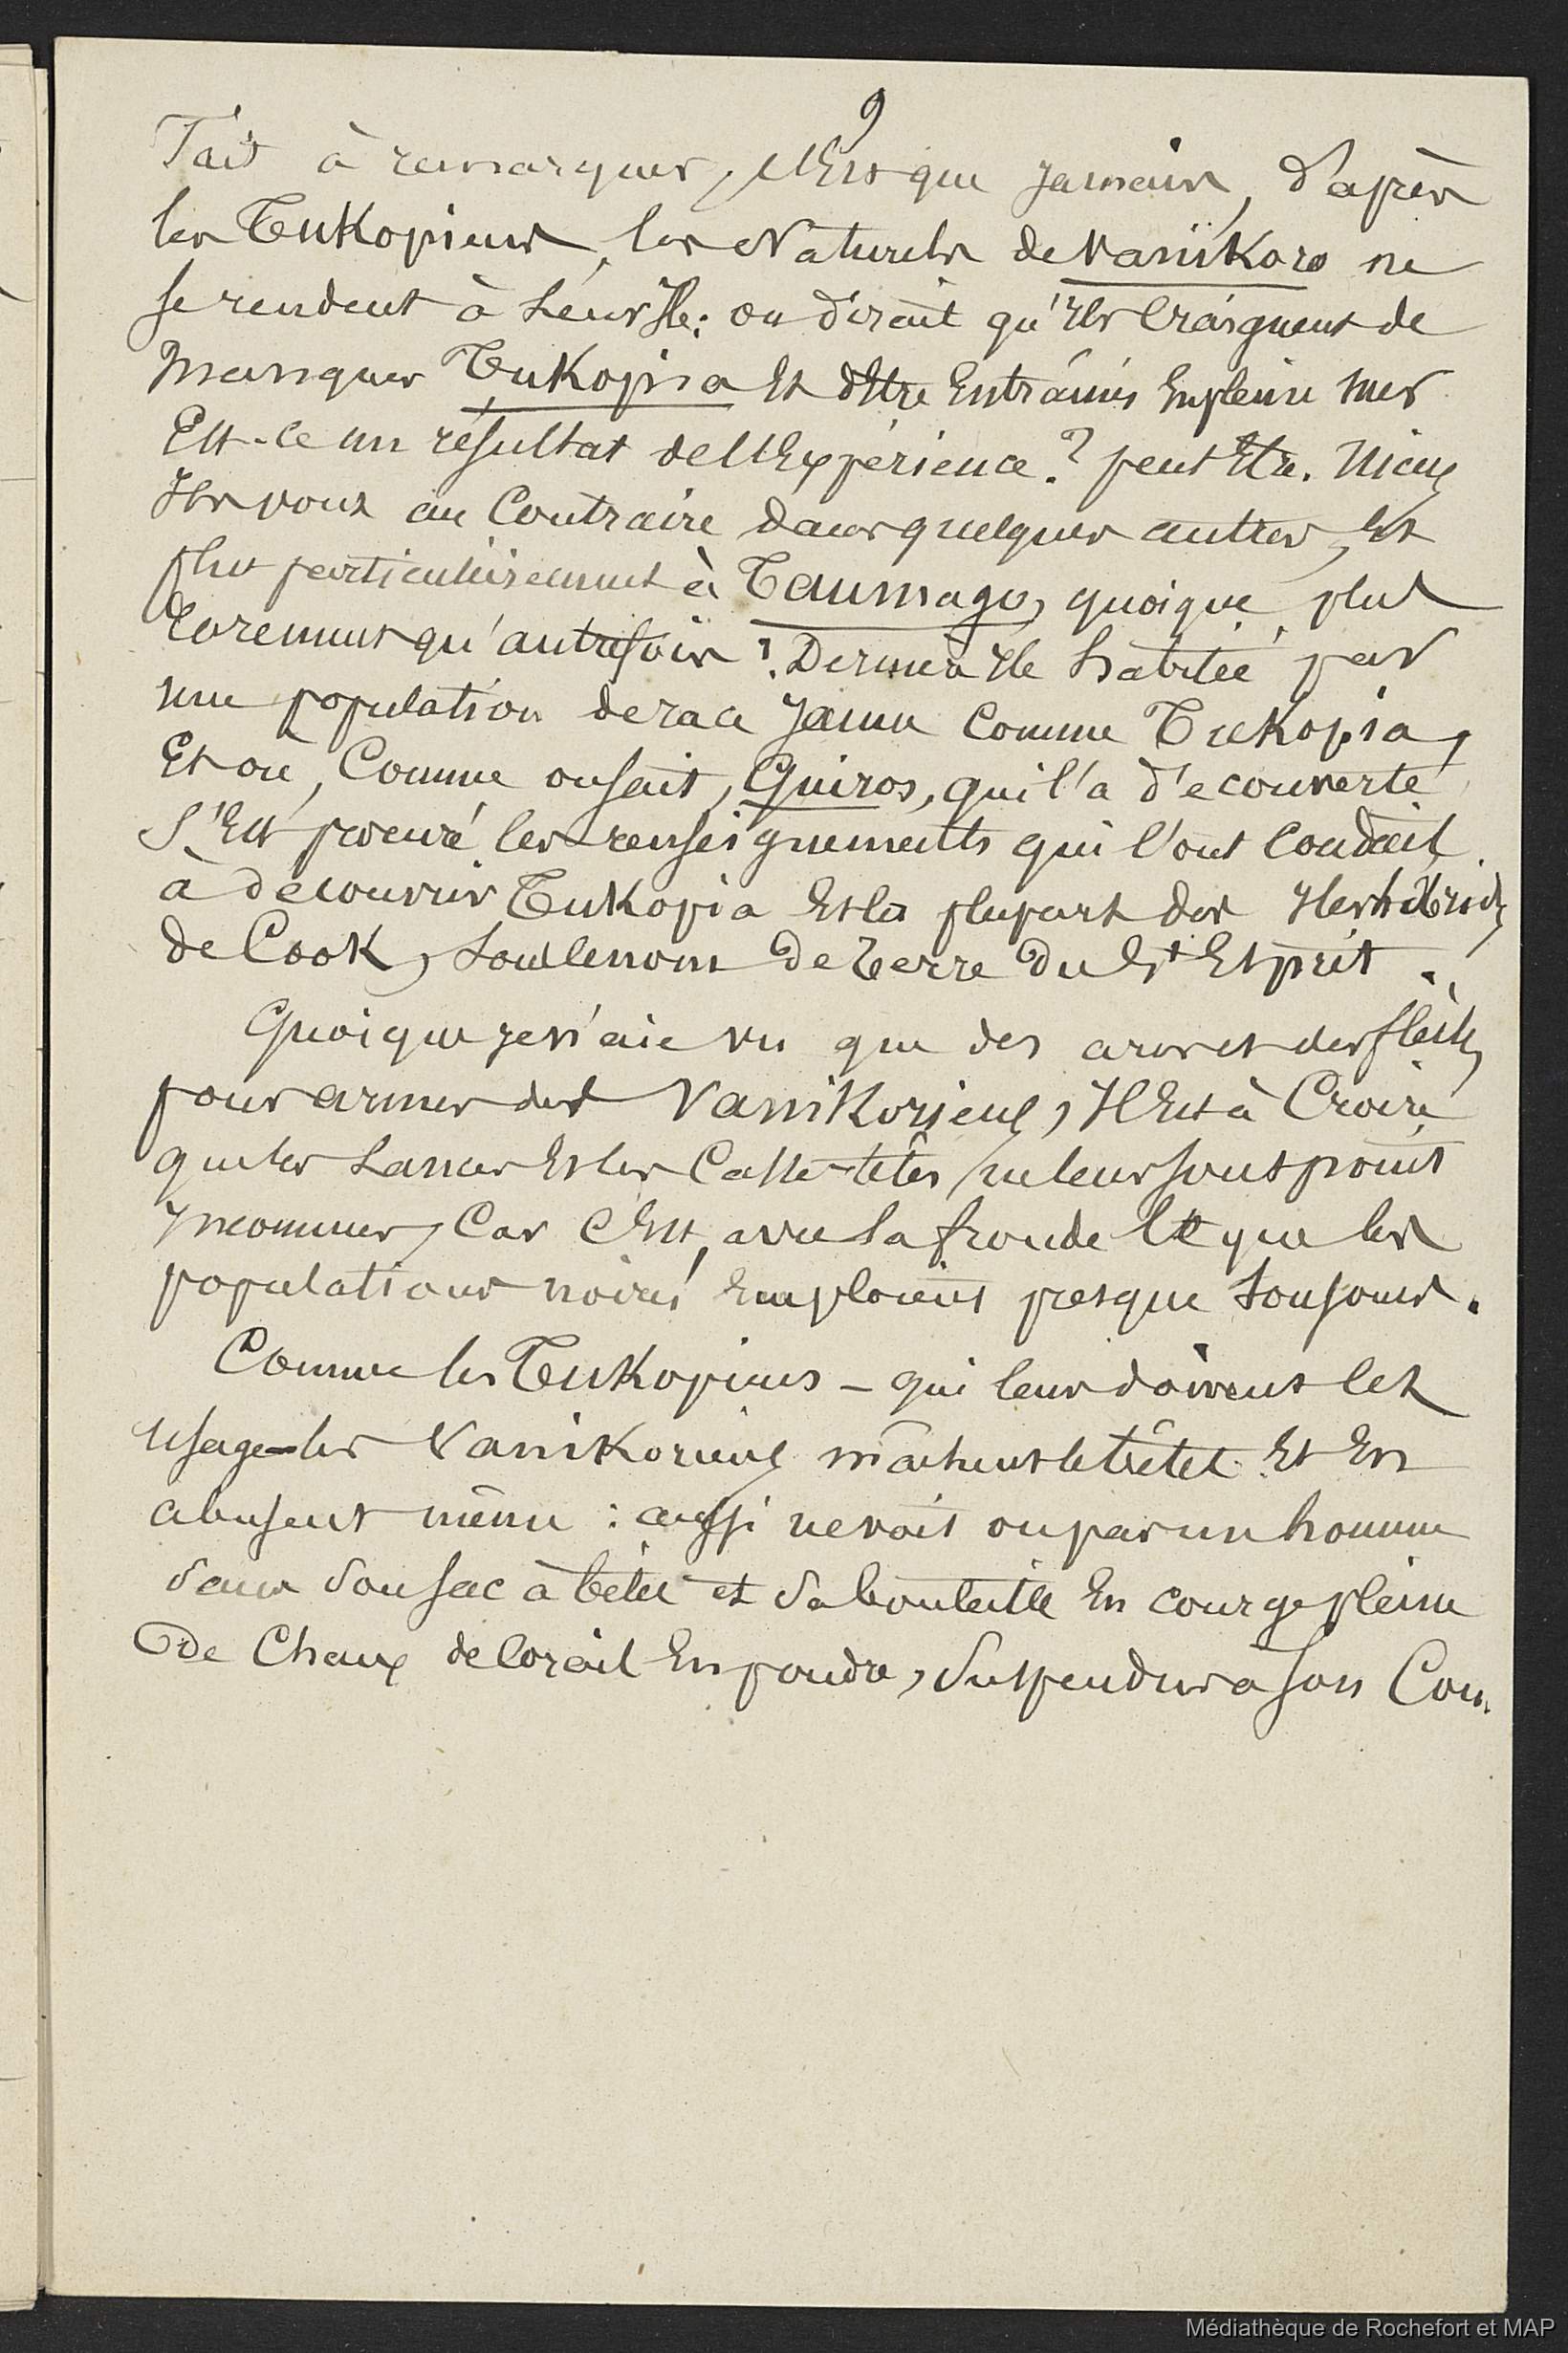 9
Fait à remarquer, c'Est que Jamais, d'après
les Tukopiens, les Naturels de Vanikoro ne
se rendent à Leur Ile : on dirait qu'Ils Craignent de
Manquer Tukopia Et d'Etre Entrainés En pleine mer
Est-ce un résultat de l'Expérience ? peut Etre. Mieux
Ils vont au Contraire dans quelques autres, Et
plus particulièrement à Taumago, quoique plus
rarement qu'autrefois : Dernière Ile habitée par
une population de race Jaune Comme Tukopia,
Et où, Comme on sait, Quiros, qui l'a découverte
S'Est procuré les renseignements qui l'ont Conduit
à découvrir Tukopia Et la plupart des Iles hébrides
de Cook, Sous le nom de Terre du St Esprit.
Quoique je n'aie vu que des arcs et des flèches
pour armes des Vanikoriens, Il Est à Croire
que les Lances Et les Casse-têtes ne leur sont point
Inconnus, Car C'Est, avec la fronde Ce que les
populations noires Emploient presque toujours.
Comme les Tukopiens - qui leur doivent cet
Usage - les Vanikoriens mâchent le bétel Et En
abusent même : aussi ne voit on pas un homme
sans son sac à bétel et sa bouteille En courge pleine
De Chaux de Corail En poudre, Suspendus à son Cou.
Médiathèque de Rochefort et MAP